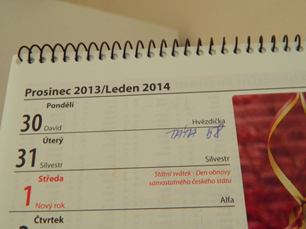 Prosinec 2013/Leden 2014
Pondělí
30 David Hvězdička
TÁŤA 58
Úterý
31 Silvestr Silvestr
Středa
1 Nový rok
Státní svátek - Den obnovy
samostatného českého státu
Alfa
Čtvrtek